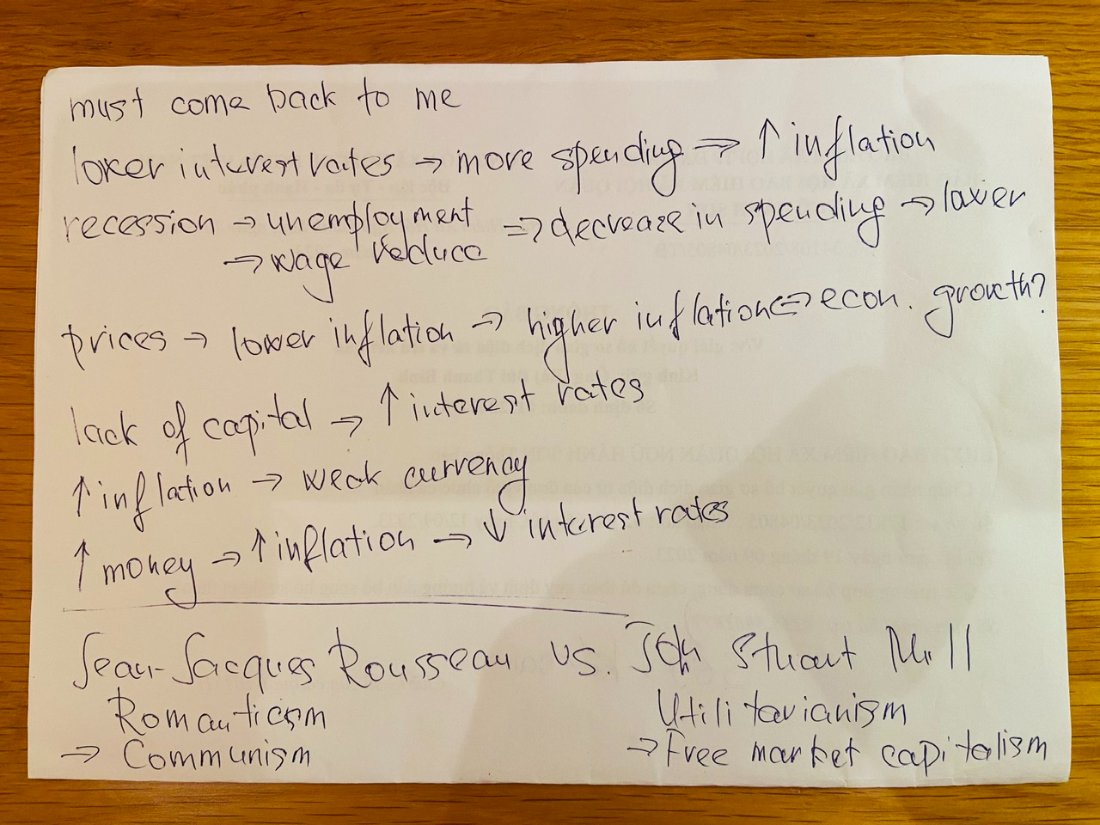 must come back to me
lower interest rates → more spending ⇒ ↑ inflation
recession → unemployment ⇒ decrease in spending → lower
→ wage reduce
prices → lower inflation → higher inflation ⇔ econ. growth?
lack of capital → ↑ interest rates
↑ inflation → weak currency
↑ money → ↑ inflation → ↓ interest rates
Jean-Jacques Rousseau vs. John Stuart Mill
Romanticism Utilitarianism
→ Communism → Free market capitalism